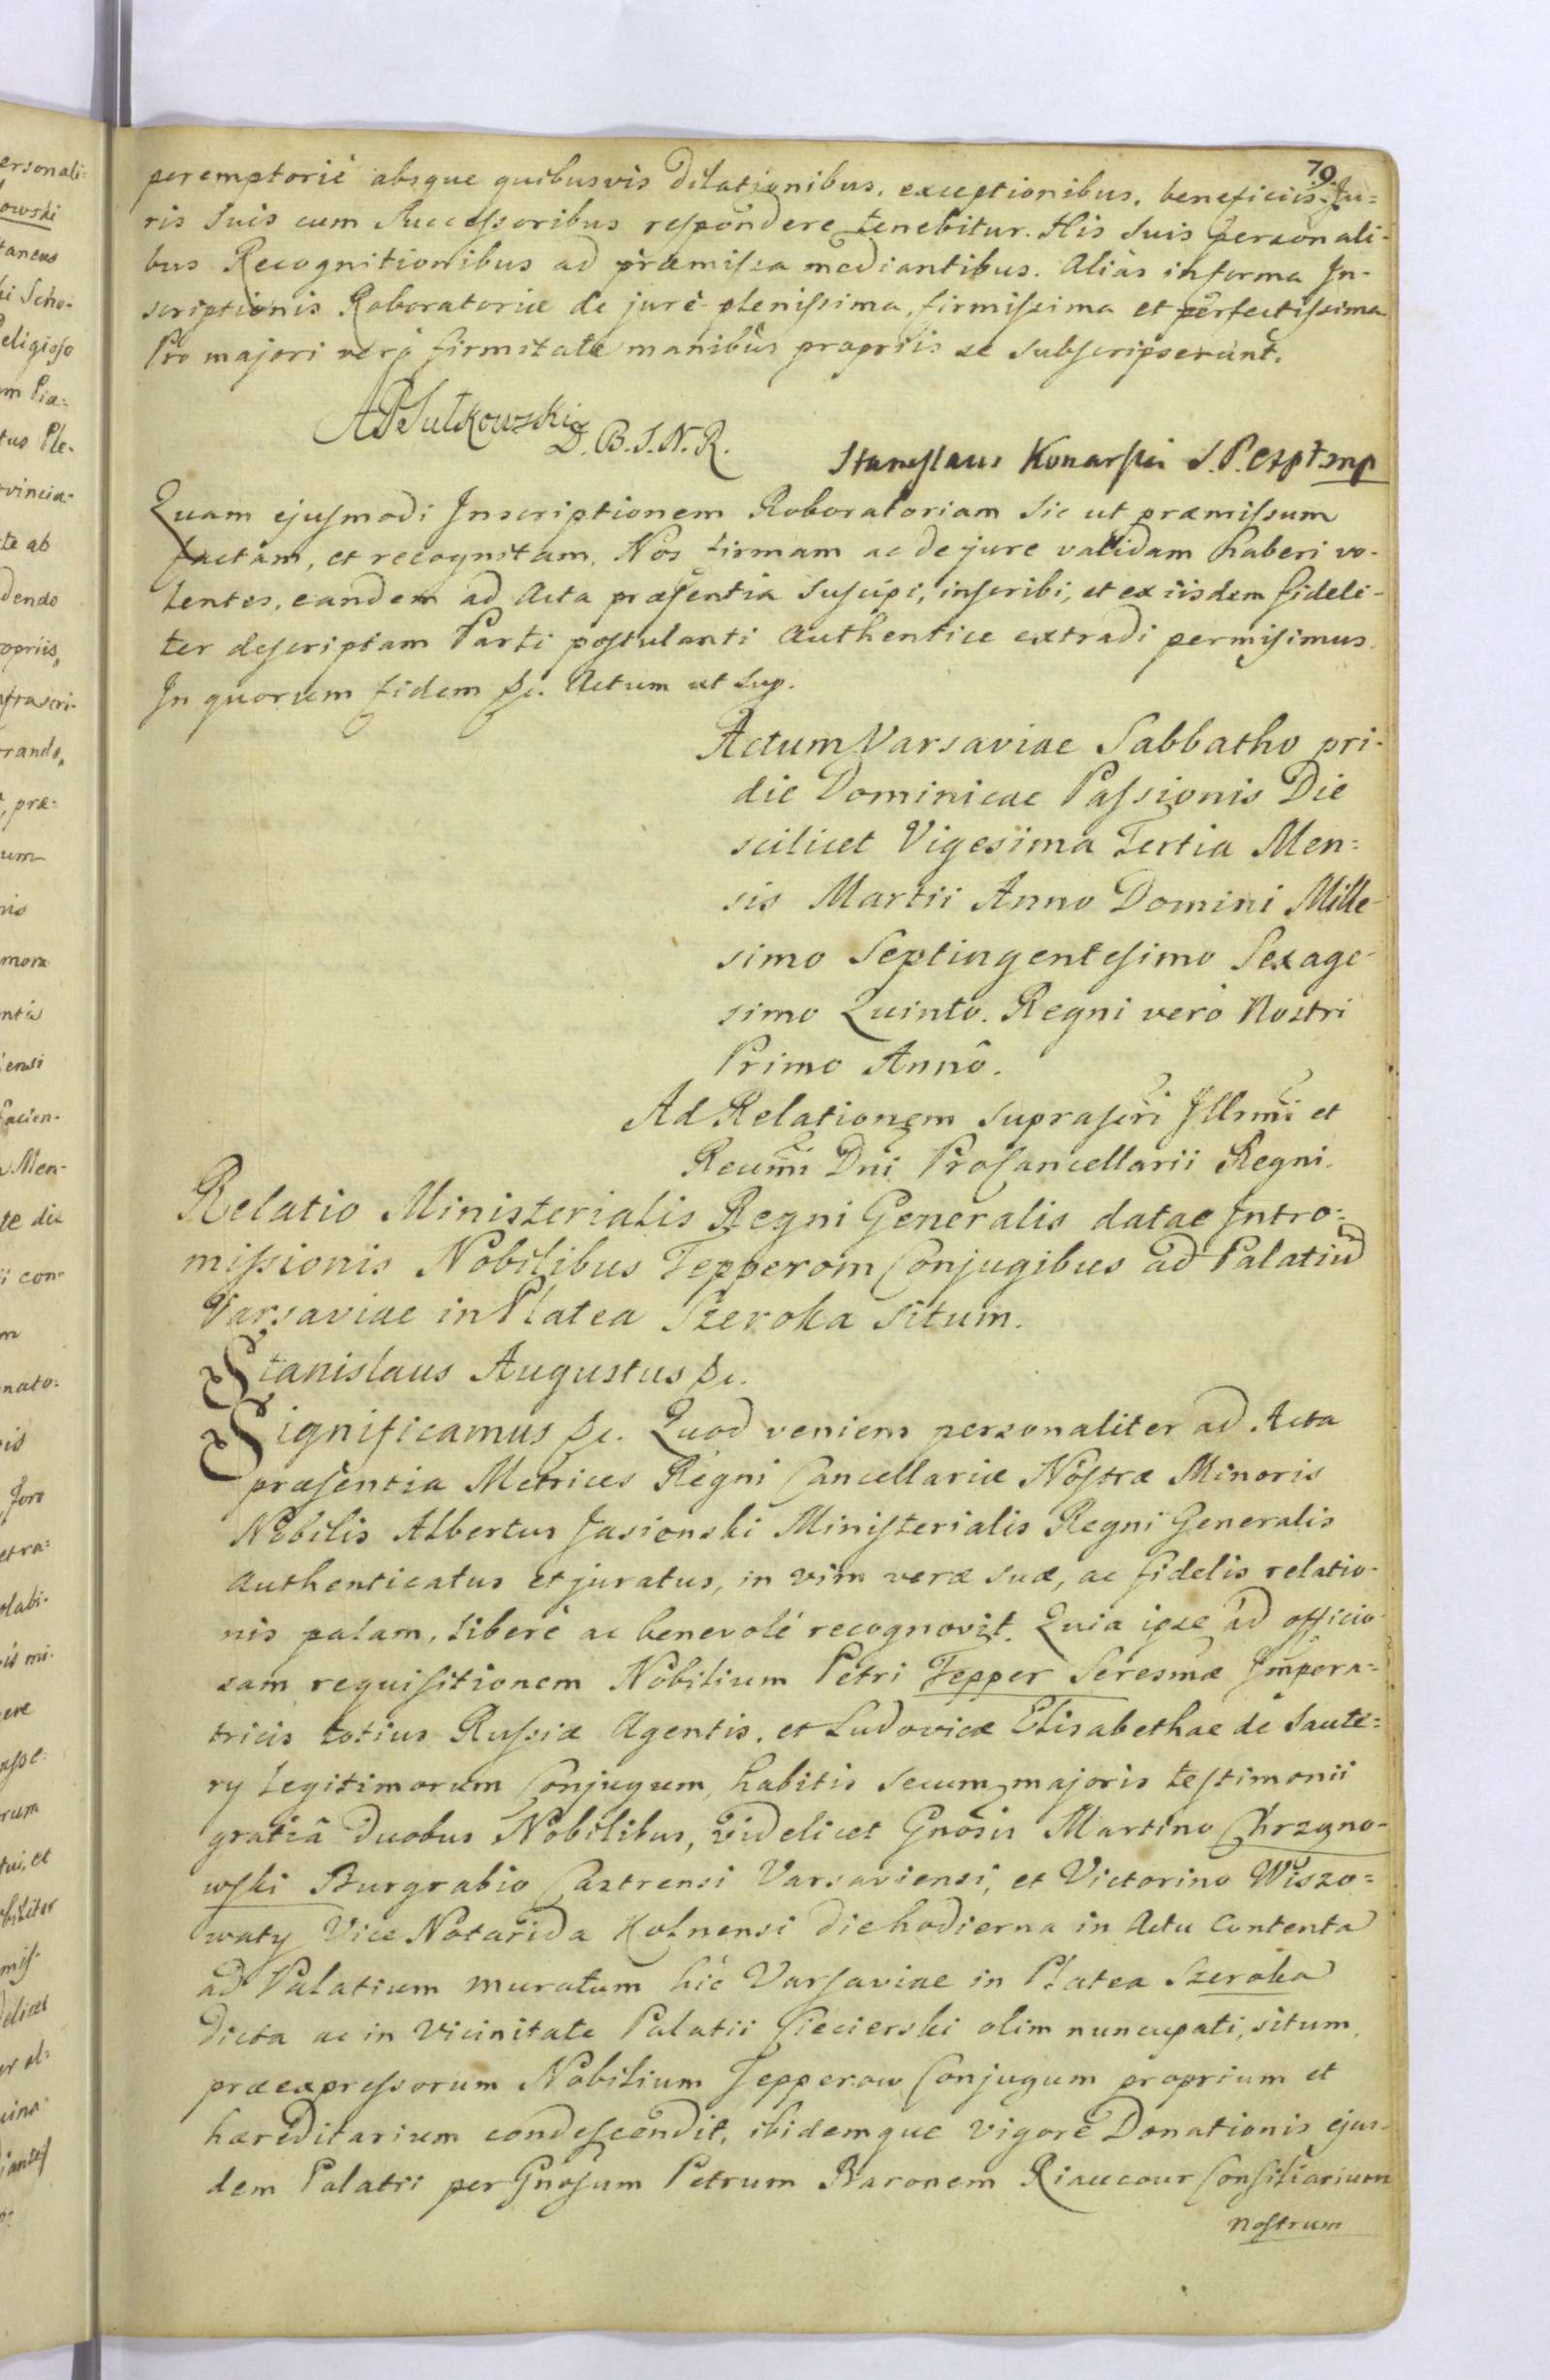 79.
peremptoriè absque quibusvis dilationibus, exceptionibus, beneficiis Ju=
ris suis cum Successoribus respondere tenebitur. His suis personali-
bus Recognitionibus ad præmissa mediantibus. Aliàs in forma In-
scriptionis Roboratoriæ de jurè plenissima, firmissima et perfectissima
Pro majori verò firmitate manibùs propriis se subscripserunt.
APSułkowski D. B. S. N. R.
Stanislaus Konarski S. P.
Quam ejusmodi Inscriptionem Roboratoriam sic ut præmissum
factam, et recognitam. Nos firmam ac de jure validam haberi vo-
lentes, eandem ad Acta præsentia suscipi, inscribi, et ex iisdem fideli-
ter descriptam Parti postulanti authentice extradi permisimus.
In quorum fidem &c. Actum ut sup.
Actum Varsaviae Sabbatho pri-
die Dominicae Passionis Die
scilicet Vigesima Tertia Men=
sis Martii Anno Domini Mille-
simo Septingentesimo Sexage-
simo Quinto. Regni verò Nostri
Primo Annô.
Ad Relationem suprascri Illrmi et
Recumi Dni ProCancellarii Regni.
Relatio Ministerialis Regni Generalis datae Intro=
missionis Nobilibus Tepperom Conjugibus ad Palatiu
Varsaviae in Platea Szeroka situm.
Stanislaus Augustus &c.
Significamus &c. Quod veniens personaliter ad Acta
præsentia Metrices Regni Cancellariæ Nostræ Minoris
Nobilis Albertus Jasionski Ministerialis Regni Generalis
authenticatus et juratus, in vim veræ suæ, ac fidelis relatio-
nis palam, liberè ac benevolè recognovit. Quia ipse ad officio-
sam requisitionem Nobilium Petri Tepper Seresmæ Impera=
tricis totius Russiæ Agentis, et Ludovicæ Elisabethae de Saute=
ry legitimorum Conjugum, habitis secum majoris testimonii
gratiâ duobus Nobilibus, videlicet Gnosis Martino Chrzano-
wski Burgrabio Castrensi Varsaviensi, et Victorino Wiszo=
waty Vice Notarida Kolnensi die hodierna in Actu Contenta
ad Palatium muratum hic Varsaviae in Platea Szeroka
dicta ac in vicinitate Palatii Ciecierski olim nuncupati, situm,
præexpressorum Nobilium Tepperow Conjugum proprium et
hæreditarium condescendit, ibidemque vigore Donationis ejus-
dem Palatii per Gnosum Petrum Baronem Riaucour Consiliarium
nostrum